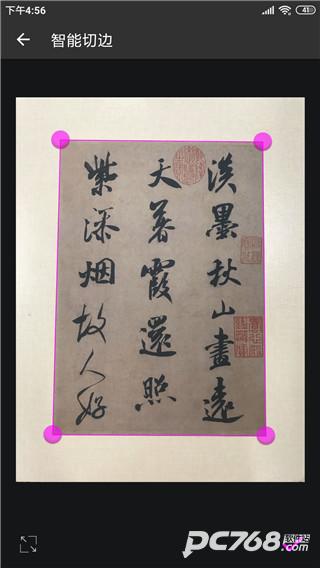 下午4:56
41
智能切边
淡墨秋山畫遠
天暮霞還照
紫添烟故人好
PC768
软件站
.com